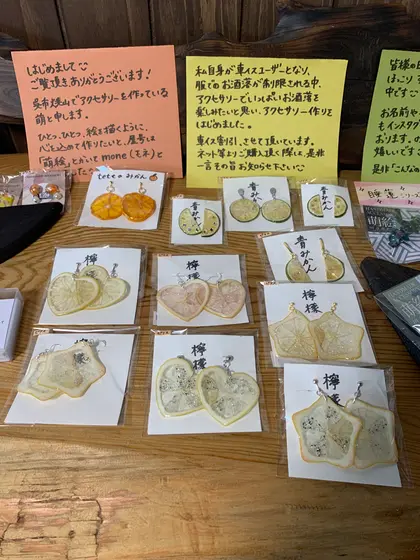 はじめまして
ご覧頂き、ありがとうございます!
呉市焼山でアクセサリーを作っている
萌と申します。
ひとつ、ひとつ、絵を描くように、
心を込めて作りたいと、屋号を
「萌絵」とかいてmone(モネ)と
私自身が車イスユーザーとなり、
服でのお洒落が制限される中、
アクセサリーでいっぱいお洒落を
楽しみたいと思い、アクセサリー作りを
はじめました。
車イス割引、させて頂いています。
ネット等よりご購入頂く際は、是非
一言その旨お知らせ下さい
皆様の日
ほっこり
中です
お名前や、
もインスタグ
おります。
嬉しいです
是非「こんなの
tetteのみかん
青みかん
青みかん
青みかん
青みかん
檸檬
檸檬
檸檬
檸檬
檸檬
檸檬
萌絵